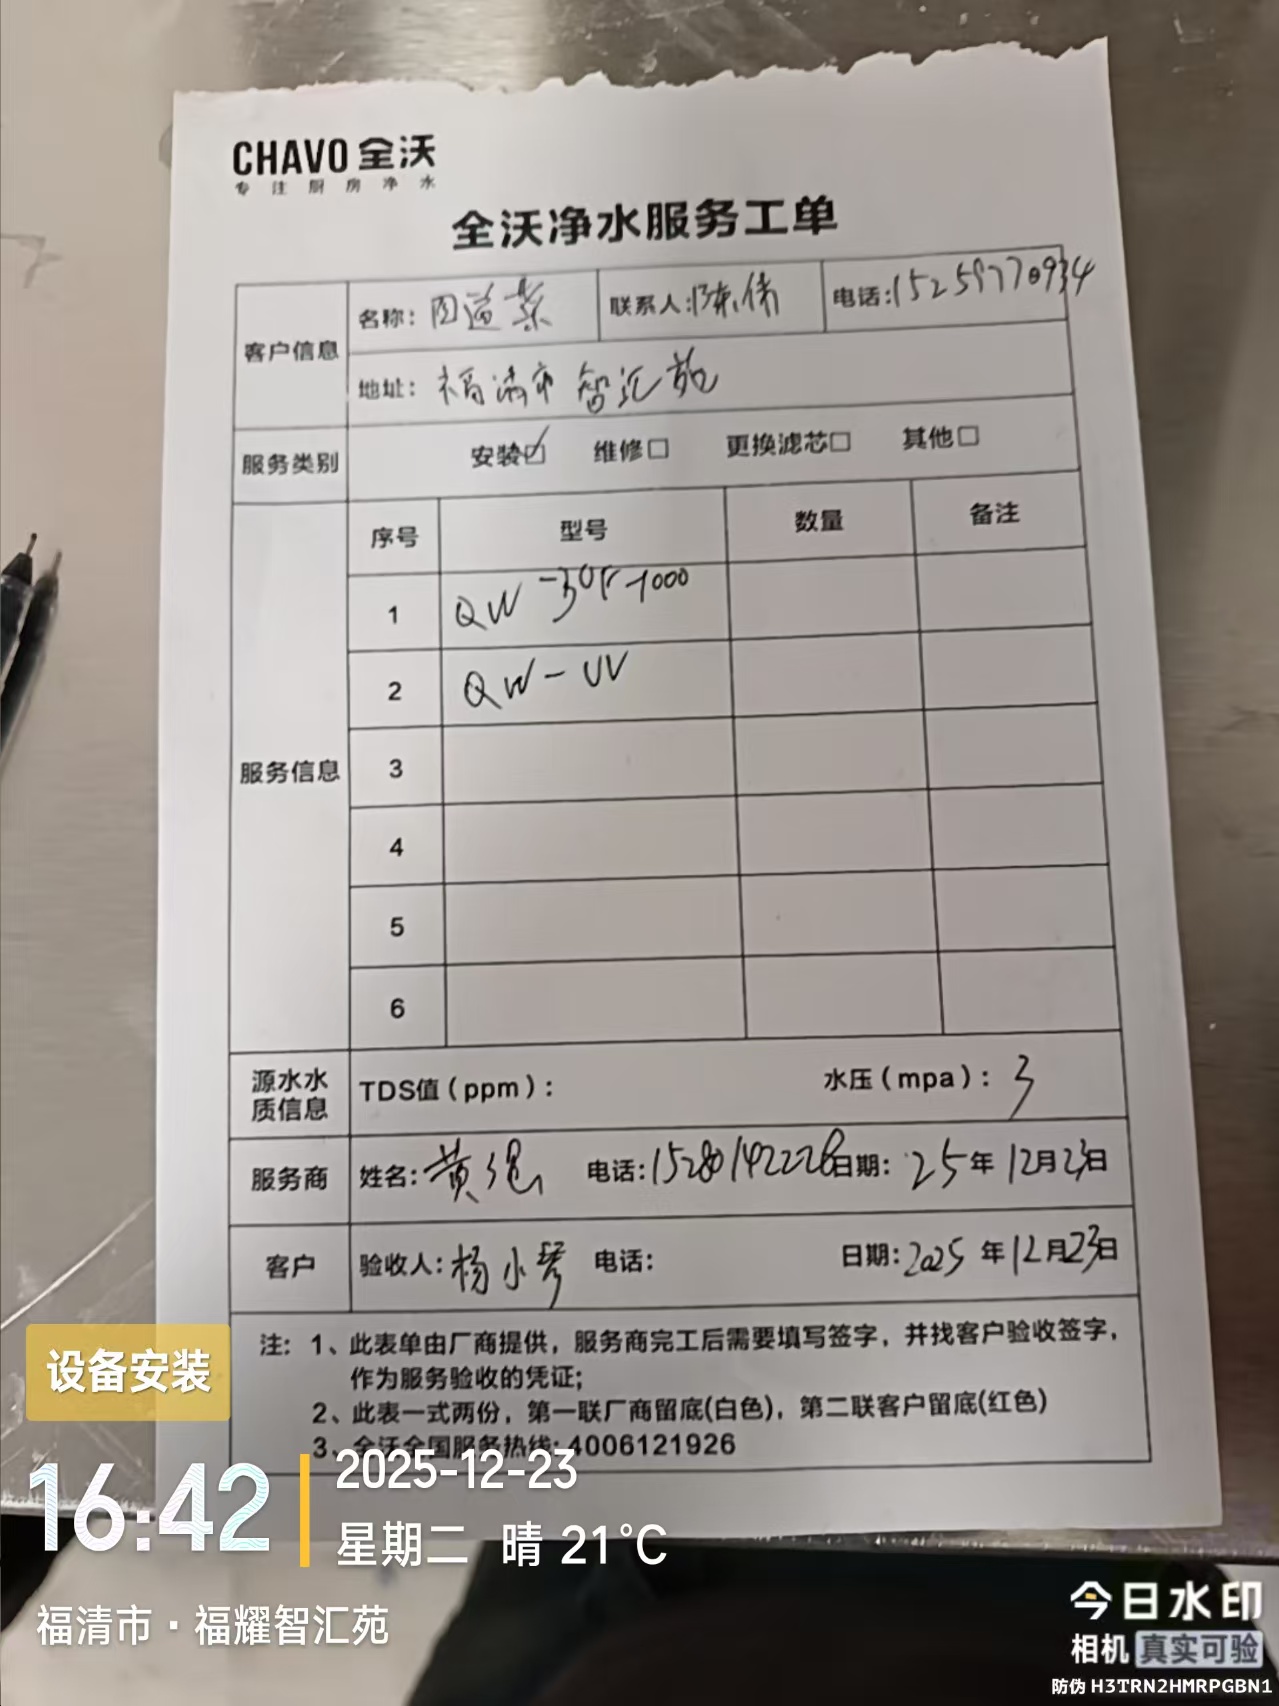 CHAVO 全沃
专注厨房净水
全沃净水服务工单
客户信息 名称: 联系人:陈伟 电话:15259770934
地址: 福清市智汇苑
服务类别 安装☑ 维修□ 更换滤芯□ 其他□
服务信息 序号 型号 数量 备注
1 QW
2 QW-UV
3
4
5
6
源水水质信息 TDS值(ppm): 水压(mpa): 3
服务商 姓名:黄 电话:15280142228 日期: 25年12月23日
客户 验收人:杨小琴 电话: 日期:2025年12月23日
注: 1、此表单由厂商提供，服务商完工后需要填写签字，并找客户验收签字，
作为服务验收的凭证;
2、此表一式两份，第一联厂商留底(白色)，第二联客户留底(红色)
3、全沃全国服务热线:4006121926
设备安装
16:42 2025-12-23
星期二 晴 21℃
福清市·福耀智汇苑
今日水印
相机 真实可验
防伪 H3TRN2HMRPGBN1